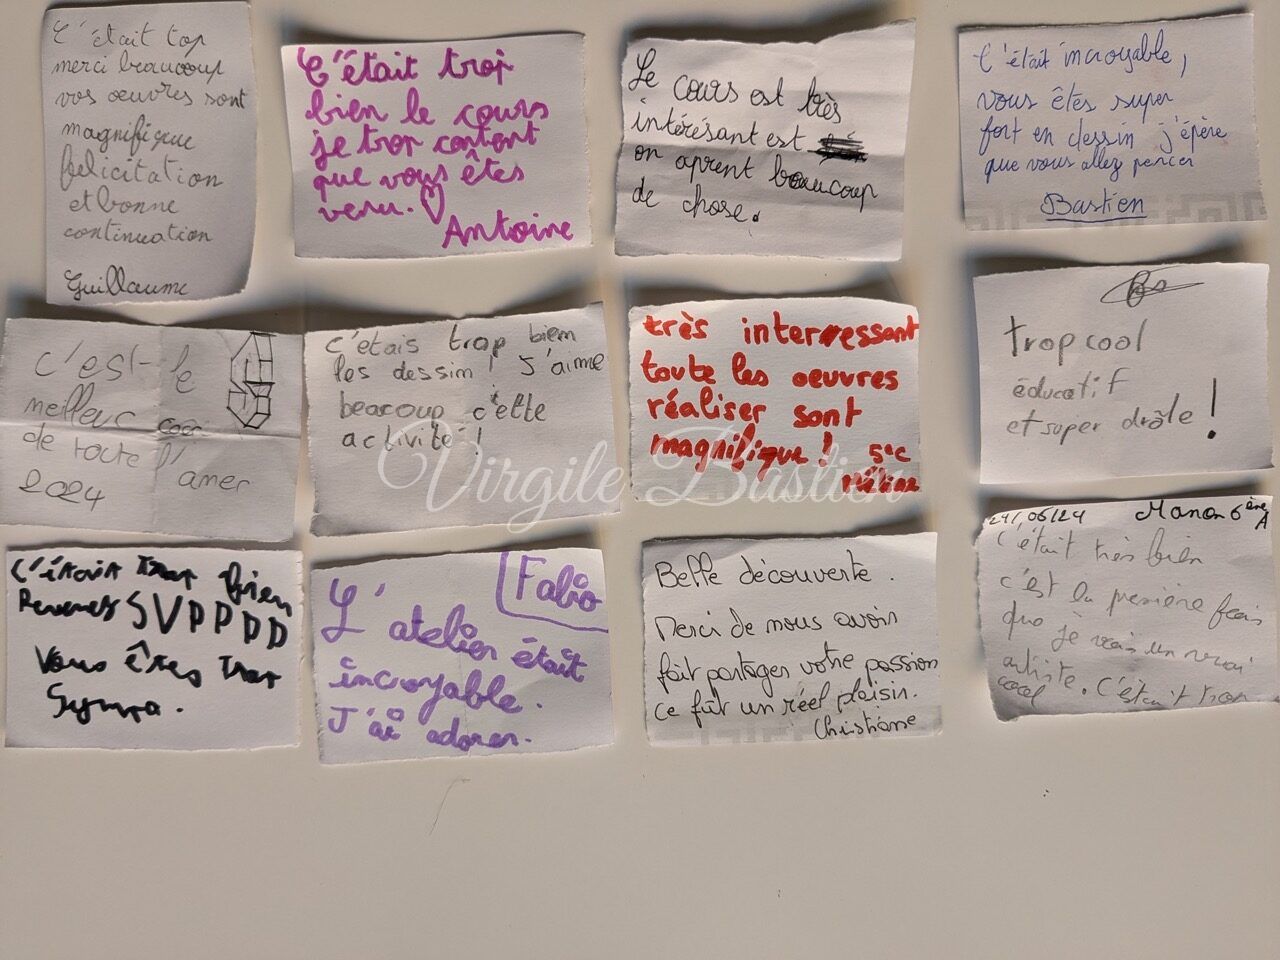 C'était top
merci beaucoup
vos œuvres sont
magnifique
felicitation
et bonne
continuation
Guillaume
C'était trop
bien le cours
je trop content
que vous êtes
venu.♡
Antoine
Le cours est très
intérésant est
on aprent beaucoup
de chose.
C'était incroyable,
vous êtes super
fort en dessin j'épère
que vous allez percer
Bastien
c'est le
meilleur cour
de toute l'
2024 aner
c'étais trop bien
les dessim ! J'aime
beacoup c'ette
activité !
très interressant
toute les oeuvres
réaliser sont
magnifique ! 5eC
trop cool
éducatif
et super drôle !
C'était trop bien
Revenez SVPPPP
Vous êtes trop
Sympa.
Fabio
L'atelier était
incroyable.
J'ai adorer.
Belle découverte.
Merci de nous avoir
fait partager votre passion
ce fût un réel plaisir.
Christiane
24/06/24 Manon 6ème A
C'était très bien
c'est la première fois
que je vois un vrai
artiste. C'était trop
cool
Virgile Bastien